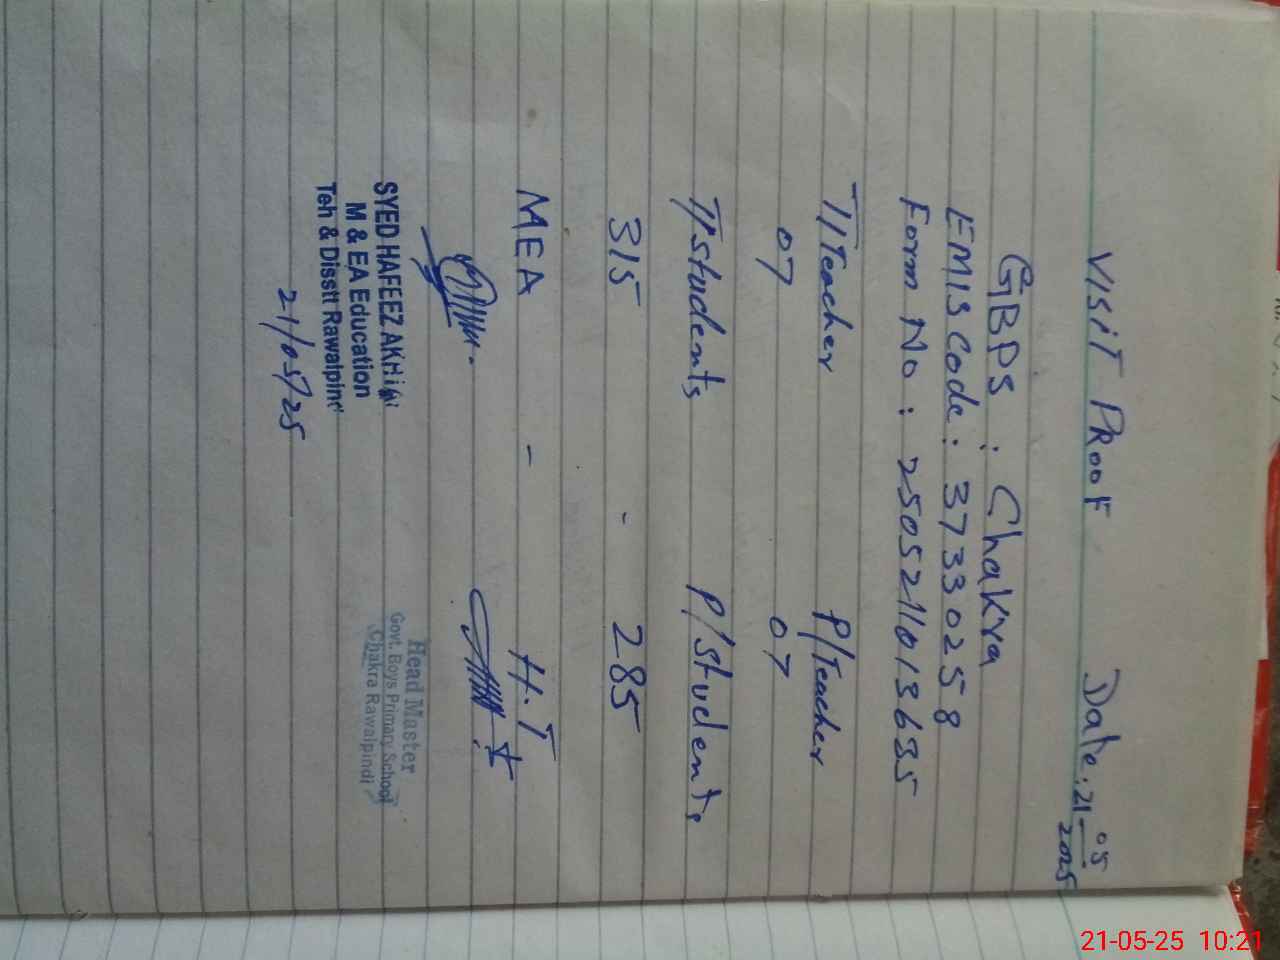 VISIT PROOF Date: 21-05-2025
GBPS : Chakra
EMIS Code : 37330258
Form No : 2505211013635
T/Teacher P/Teacher
07 07
T/Students P/Students
315 - 285
MEA - H.T
SYED HAFEEZ
M & EA Education
Teh & Distt Rawalpin
21/05/25
Head Master
Govt. Boys Primary School
Chakra Rawalpindi
21-05-25 10:21